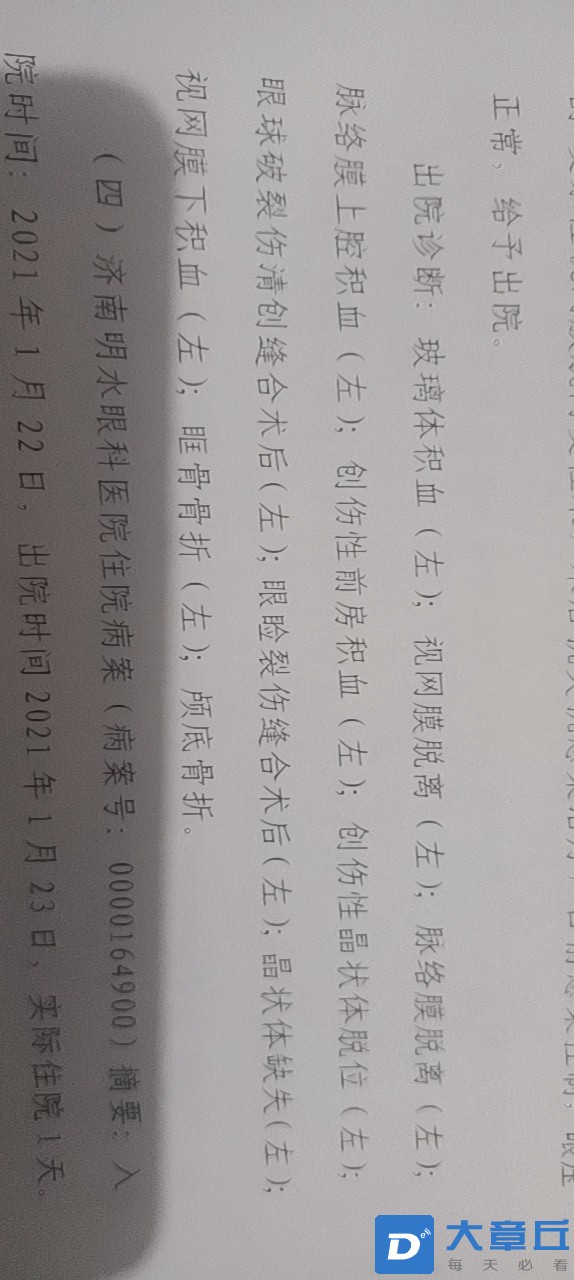 正常，给予出院。
出院诊断：玻璃体积血（左）；视网膜脱离（左）；脉络膜脱离（左）；
脉络膜上腔积血（左）；创伤性前房积血（左）；创伤性晶状体脱位（左）；
眼球破裂伤清创缝合术后（左）；眼睑裂伤缝合术后（左）；晶状体缺失（左）；
视网膜下积血（左）；眶骨骨折（左）；颅底骨折。
（四）济南明水眼科医院住院病案（病案号：0000164900）摘要：入
院时间：2021年1月22日，出院时间2021年1月23日，实际住院1天。
大章丘
每天必看